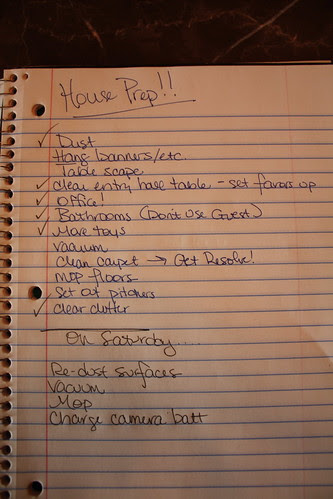 House Prep!!
✓ Dust
Hang banners/etc.
Table scape
✓ Clear entry hall table - set favors up
✓ Office!
✓ Bathrooms (Don't Use Guest)
✓ More toys
Vacuum
Clean carpet → Get Resolve!
Mop floors
✓ Set out pitchers
✓ Clear clutter
On Saturday.....
Re-dust surfaces
Vacuum
Mop
Charge camera batt